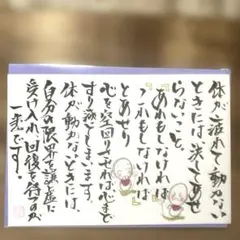 体が疲れて動かない
ときには決してあせ
らないこと。
あれもしなければ
これもしなければ
とあせり
心を空回りさせれば心まで
すり減ってしまいます。
体が動かないときには、
自分の限界を謙虚に
受け入れ、回復を待つのが
一番です。